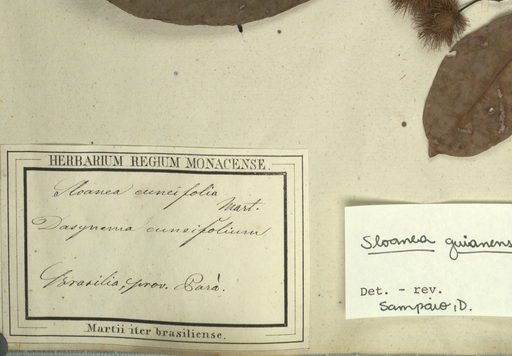 HERBARIUM REGIUM MONACENSE.
Sloanea cuneifolia
Mart.
Dasynema cuneifolium
Brasilia, prov. Pará.
Martii iter brasiliense.
Sloanea guianens
Det. - rev.
Sampaio, D.